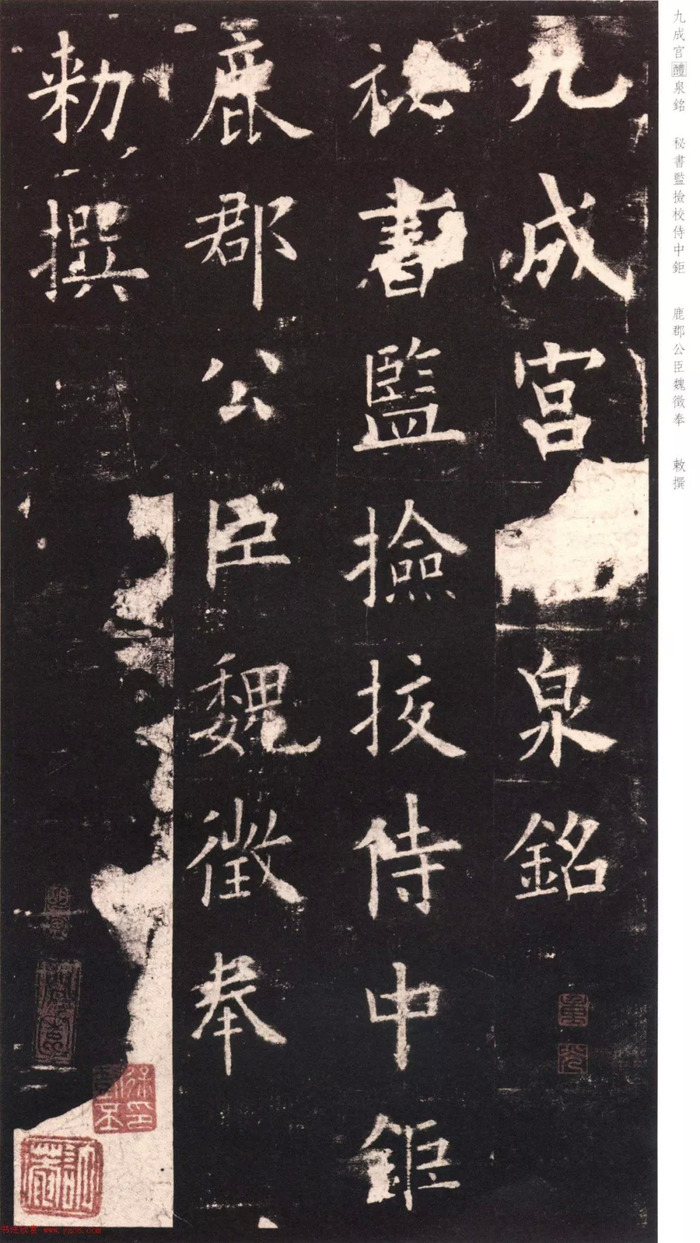 九成宮泉銘
祕書監撿挍侍中鉅
鹿郡公臣魏徵奉
勑撰
九成宮醴泉銘 秘書監撿校侍中鉅 鹿郡公臣魏徵奉 敕撰